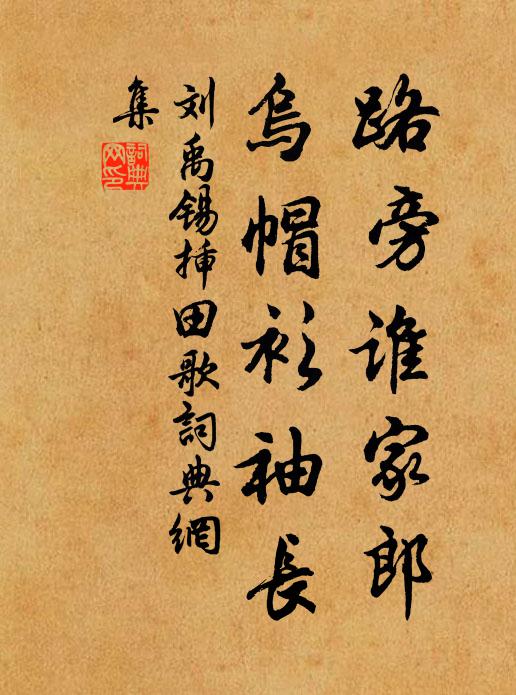 路旁谁家郎
烏帽衫袖長
刘禹锡挿田歌詞典網
集
詞典網印